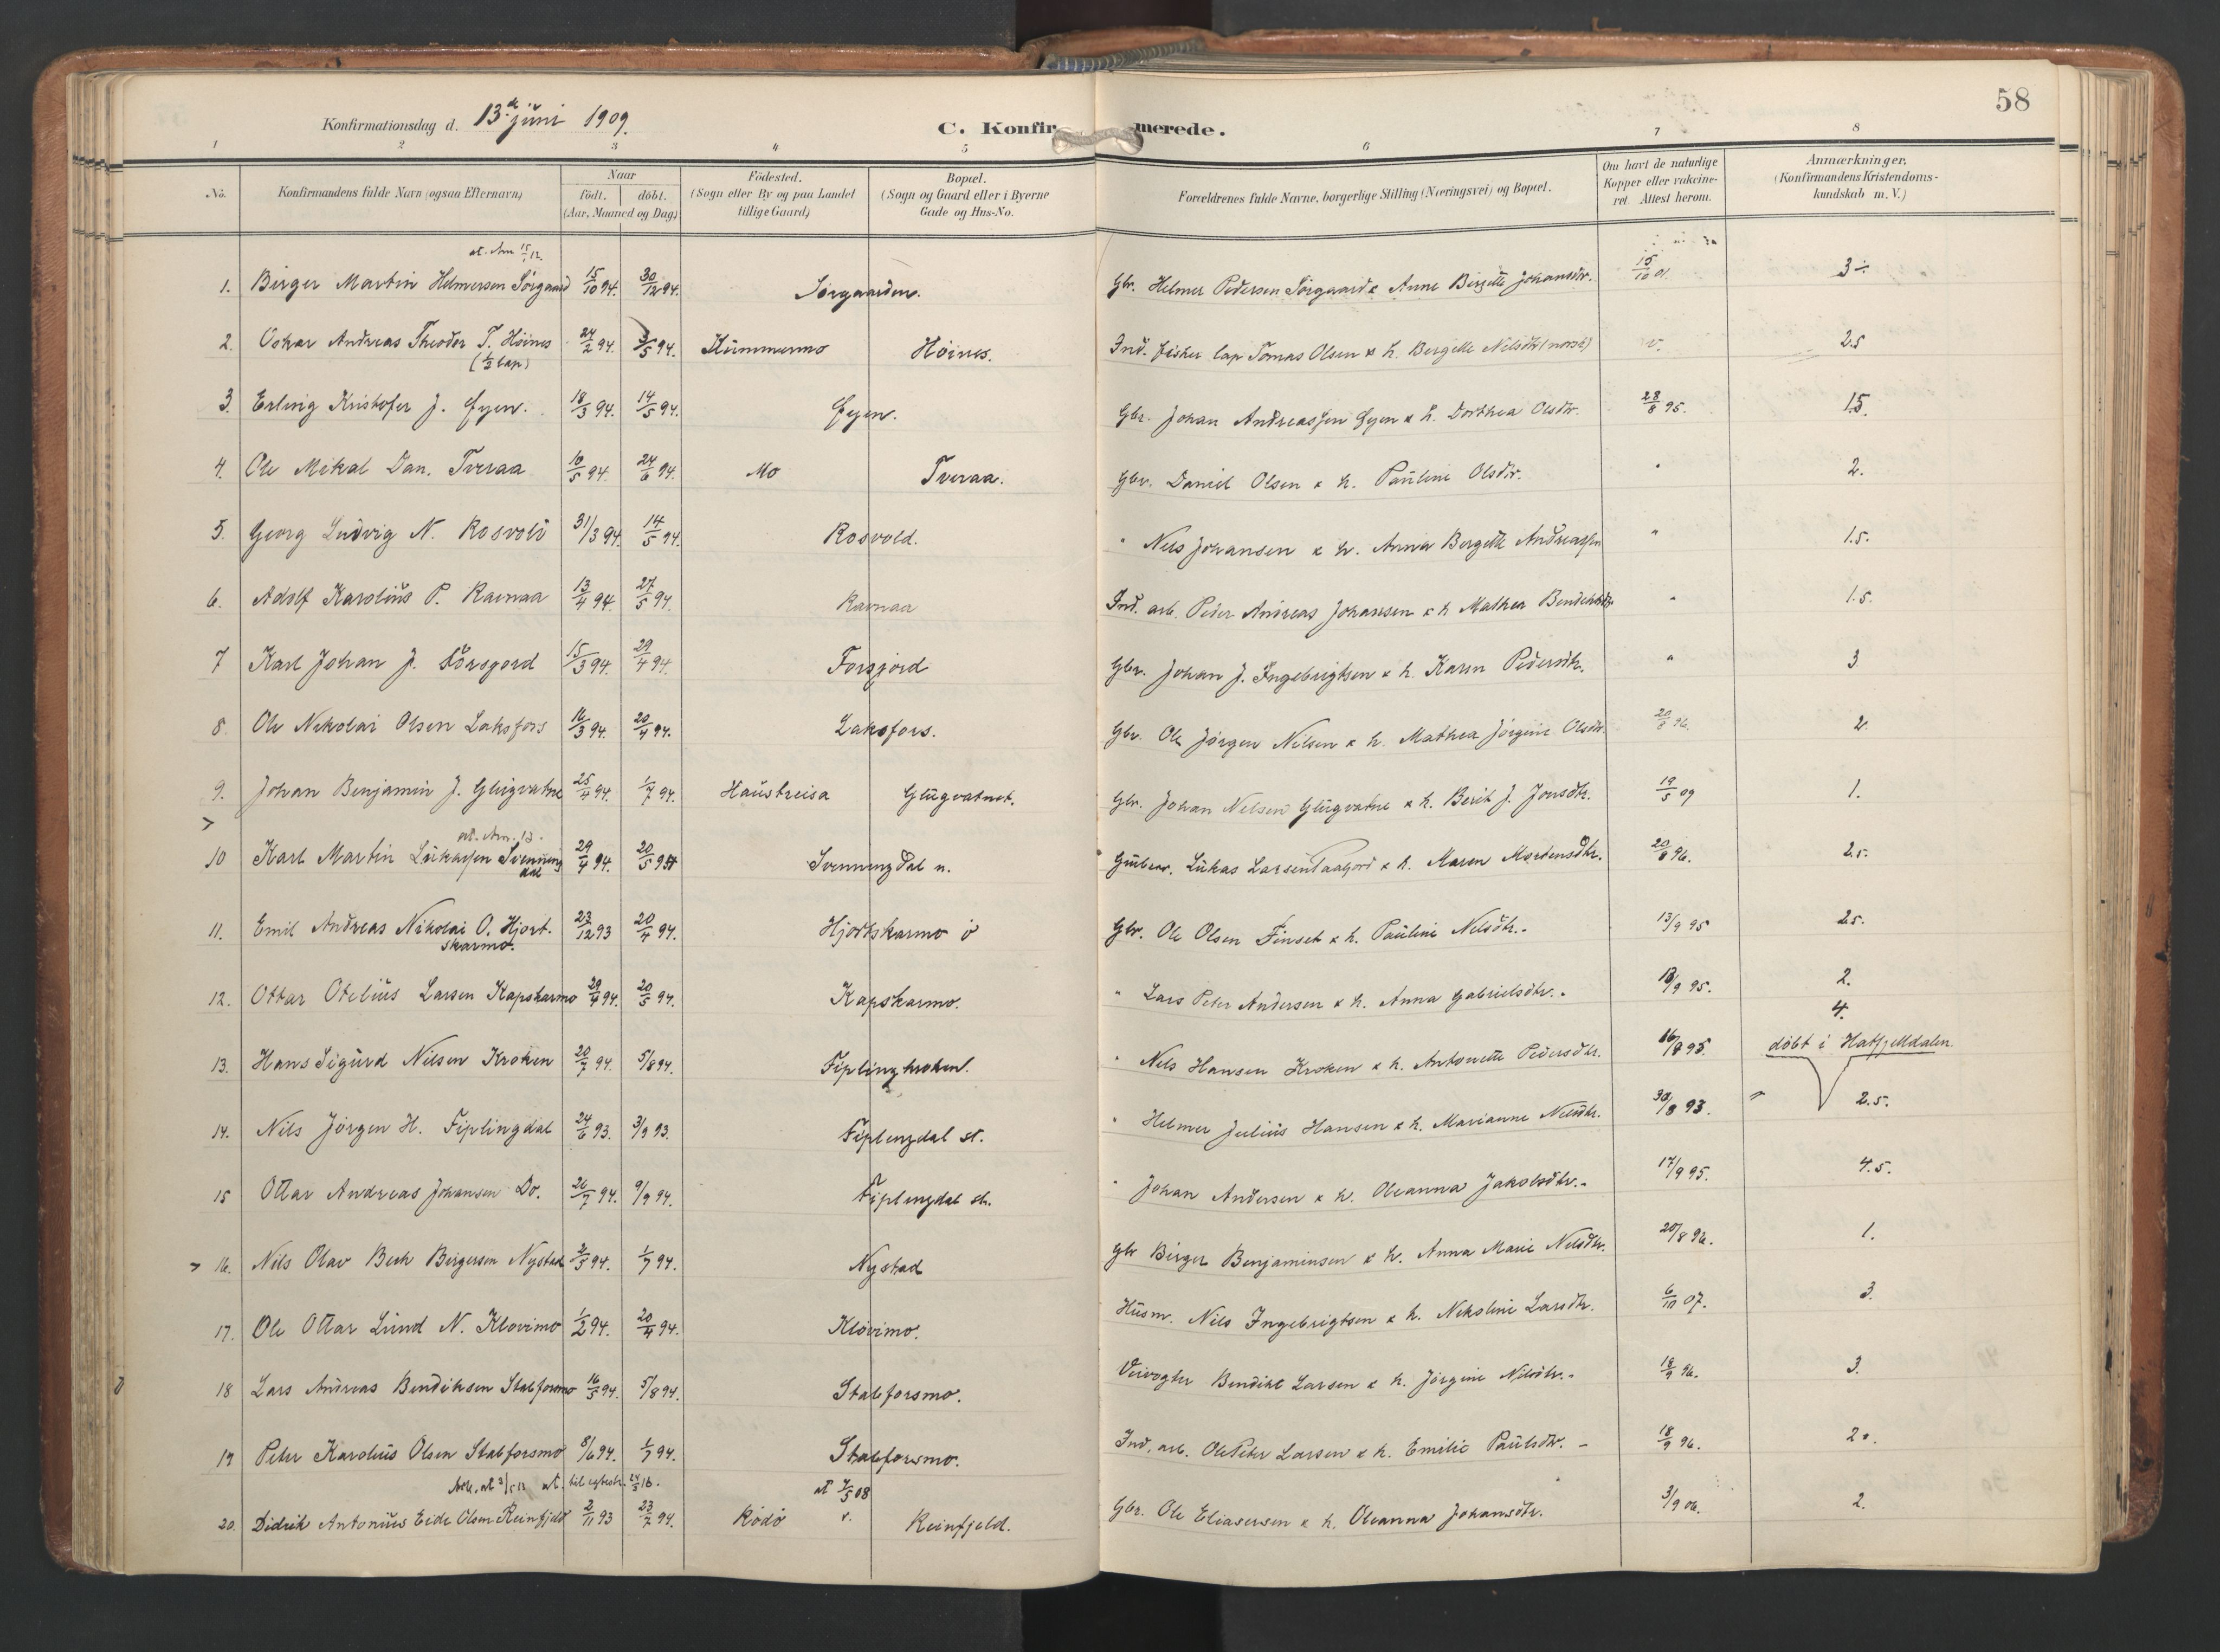 58
Konfirmationsdag d. 13de juni 1909.
C. Konfirmerede.
1 2 3 4 5 6 7 8
No. Konfirmandens fulde Navn (ogsaa Efternavn) Naar födt. döbt. (Aar, Maaned og Dag) Födested. (Sogn eller By og paa Landet tillige Gaard) Bopæl. (Sogn og Gaard eller i Byerne Gade og Hus-No. Forældrenes fulde Navne, borgerlige Stilling (Næringsvei) og Bopæl. Om havt de naturlige Kopper eller vakcineret. Attest herom. Anmærkninger. (Konfirmandens Kristendomskundskab m. V.)
at. Am 15/1 12.
1. Birger Martin Helmersen Sörgaard 15/10 94. 30/12 94. Sörgaarden. Gbr. Helmer Pedersen Sörgaard & Anne Birgitte Johansdtr. 15/10 01. 3÷
2. Oskar Andreas Theodor T. Höines (½ lap) 24/2 94. 3/5 94. Kummermo Höines. Ind. fisker lap Tomas Olsen & h. Bergitte Nilsdtr (norsk) v. 2.5
3. Erling Kristofer J. Öyen. 18/3 94. 14/5 94. Öyen. Gbr. Johan Andreassen Öyen & h. Dorthea Olsdtr. 28/8 95. 1.5.
4. Ole Mikal Dan. Tveraa 10/5 94. 24/6 94. Mo Tveraa. Gbr. Daniel Olsen & h. Pauline Olsdtr. " 2.
5. Georg Ludvig N. Rosvold 31/3 94. 14/5 94. Rosvold. " Nels Johansen & h. Anna Bergitte Andreassen " 1.5.
6. Adolf Karolius P. Ravnaa 13/4 94. 27/5 94. Ravnaa Ind. arb. Peder Andreas Johansen & h Mathea Bendiktsdtr " 1.5.
7 Karl Johan J. Forsgord 15/3 94. 29/4 94. Forsjord Gbr. Johan J. Ingebrigtsen & h. Karen Pedersdtr. " 3
8. Ole Nikolai Olsen Laksfors 16/3 94. 20/4 94. Laksfors. Gbr. Ole Jörgen Nilsen & h. Mathea Jörgine Olsdtr. 20/8 96. 2
9. Johan Benjamin J. Glugvatne 25/4 94. 1/7 94. Haustreisa Glugvatnet. Gbr. Johan Nelsen Glugvatne & h. Berit J. Jonsdtr. 19/5 09 1.
at. Am. 13.
10 Karl Martin Lukassen Svenningdal 29/4 94. 20/5 94 Svenningdal n. Lukas Larsen Taagjord & h. Maren Mortensdtr. 20/8 96. 2.5.
11. Emil Andreas Nikolai O. Hjortskarmo. 23/12 93 20/4 94. Hjortskarmo ö Gbr. Ole Olsen Finset & h. Pauline Nelsdtr. 13/9 95 2.5.
12. Ottar Otelius Larsen Kapskarmo 29/4 94. 20/5 94. Kapskarmo. " Lars Peter Andersen & h. Anna Gabrielsdtr. 13/9 95. 2.
13. Hans Sigurd Nilsen Kroken 20/7 94. 5/8 94. Fiplingkroken. " Nels Hansen Kroken & h. Antonette Pedersdtr. 16/9 95. 4. döbt i Hatfjelldalen.
14. Nils Jörgen H. Fiplingdal 24/6 93. 3/9 93. Fiplingdal st. " Helmer Julius Hansen & h. Marianne Nelsdtr. 30/8 93. " 2.5.
15 Ottar Andreas Johansen Do. 26/7 94. 9/9 94. Fiplingdal st. " Johan Andersen & h. Oleanna Jakobsdtr. 17/9 95. 4.5.
16. Nils Olav Bech Beigersen Nystad 2/5 94. 1/7 94. Nystad Gbr Birger Benjaminsen & h. Anna Marie Nelsdtr. 20/8 96. 1.
17. Ole Ottar Lund N. Klovimo 1/2 94. 20/4 94. Klovimo. Husm. Nils Ingebrigtsen & h. Nekoline Larsdtr. 6/10 07. 3.
18 Lars Andreas Bendiksen Stabforsmo 16/5 94. 5/8 94. Stabforsmo. Veivogter Bendikt Larsen & h. Jörgine Nilsdtr. 18/9 96. 3.
19 Peter Karolius Olsen Stabforsmo 8/6 94. 1/7 94. Stabforsmo. Ind. arb. Ole Peter Larsen & h. Emilie Paulsdtr. 18/9 96. 2.
at 7/5 08
20. Didrik Antonius Eide Olsen Reinfjeld 2/11 93 23/7 94. Rödö Reinfjeld. Gbr. Ole Eliasersen & h. Oleanna Johansdtr. 3/9 06. 2.